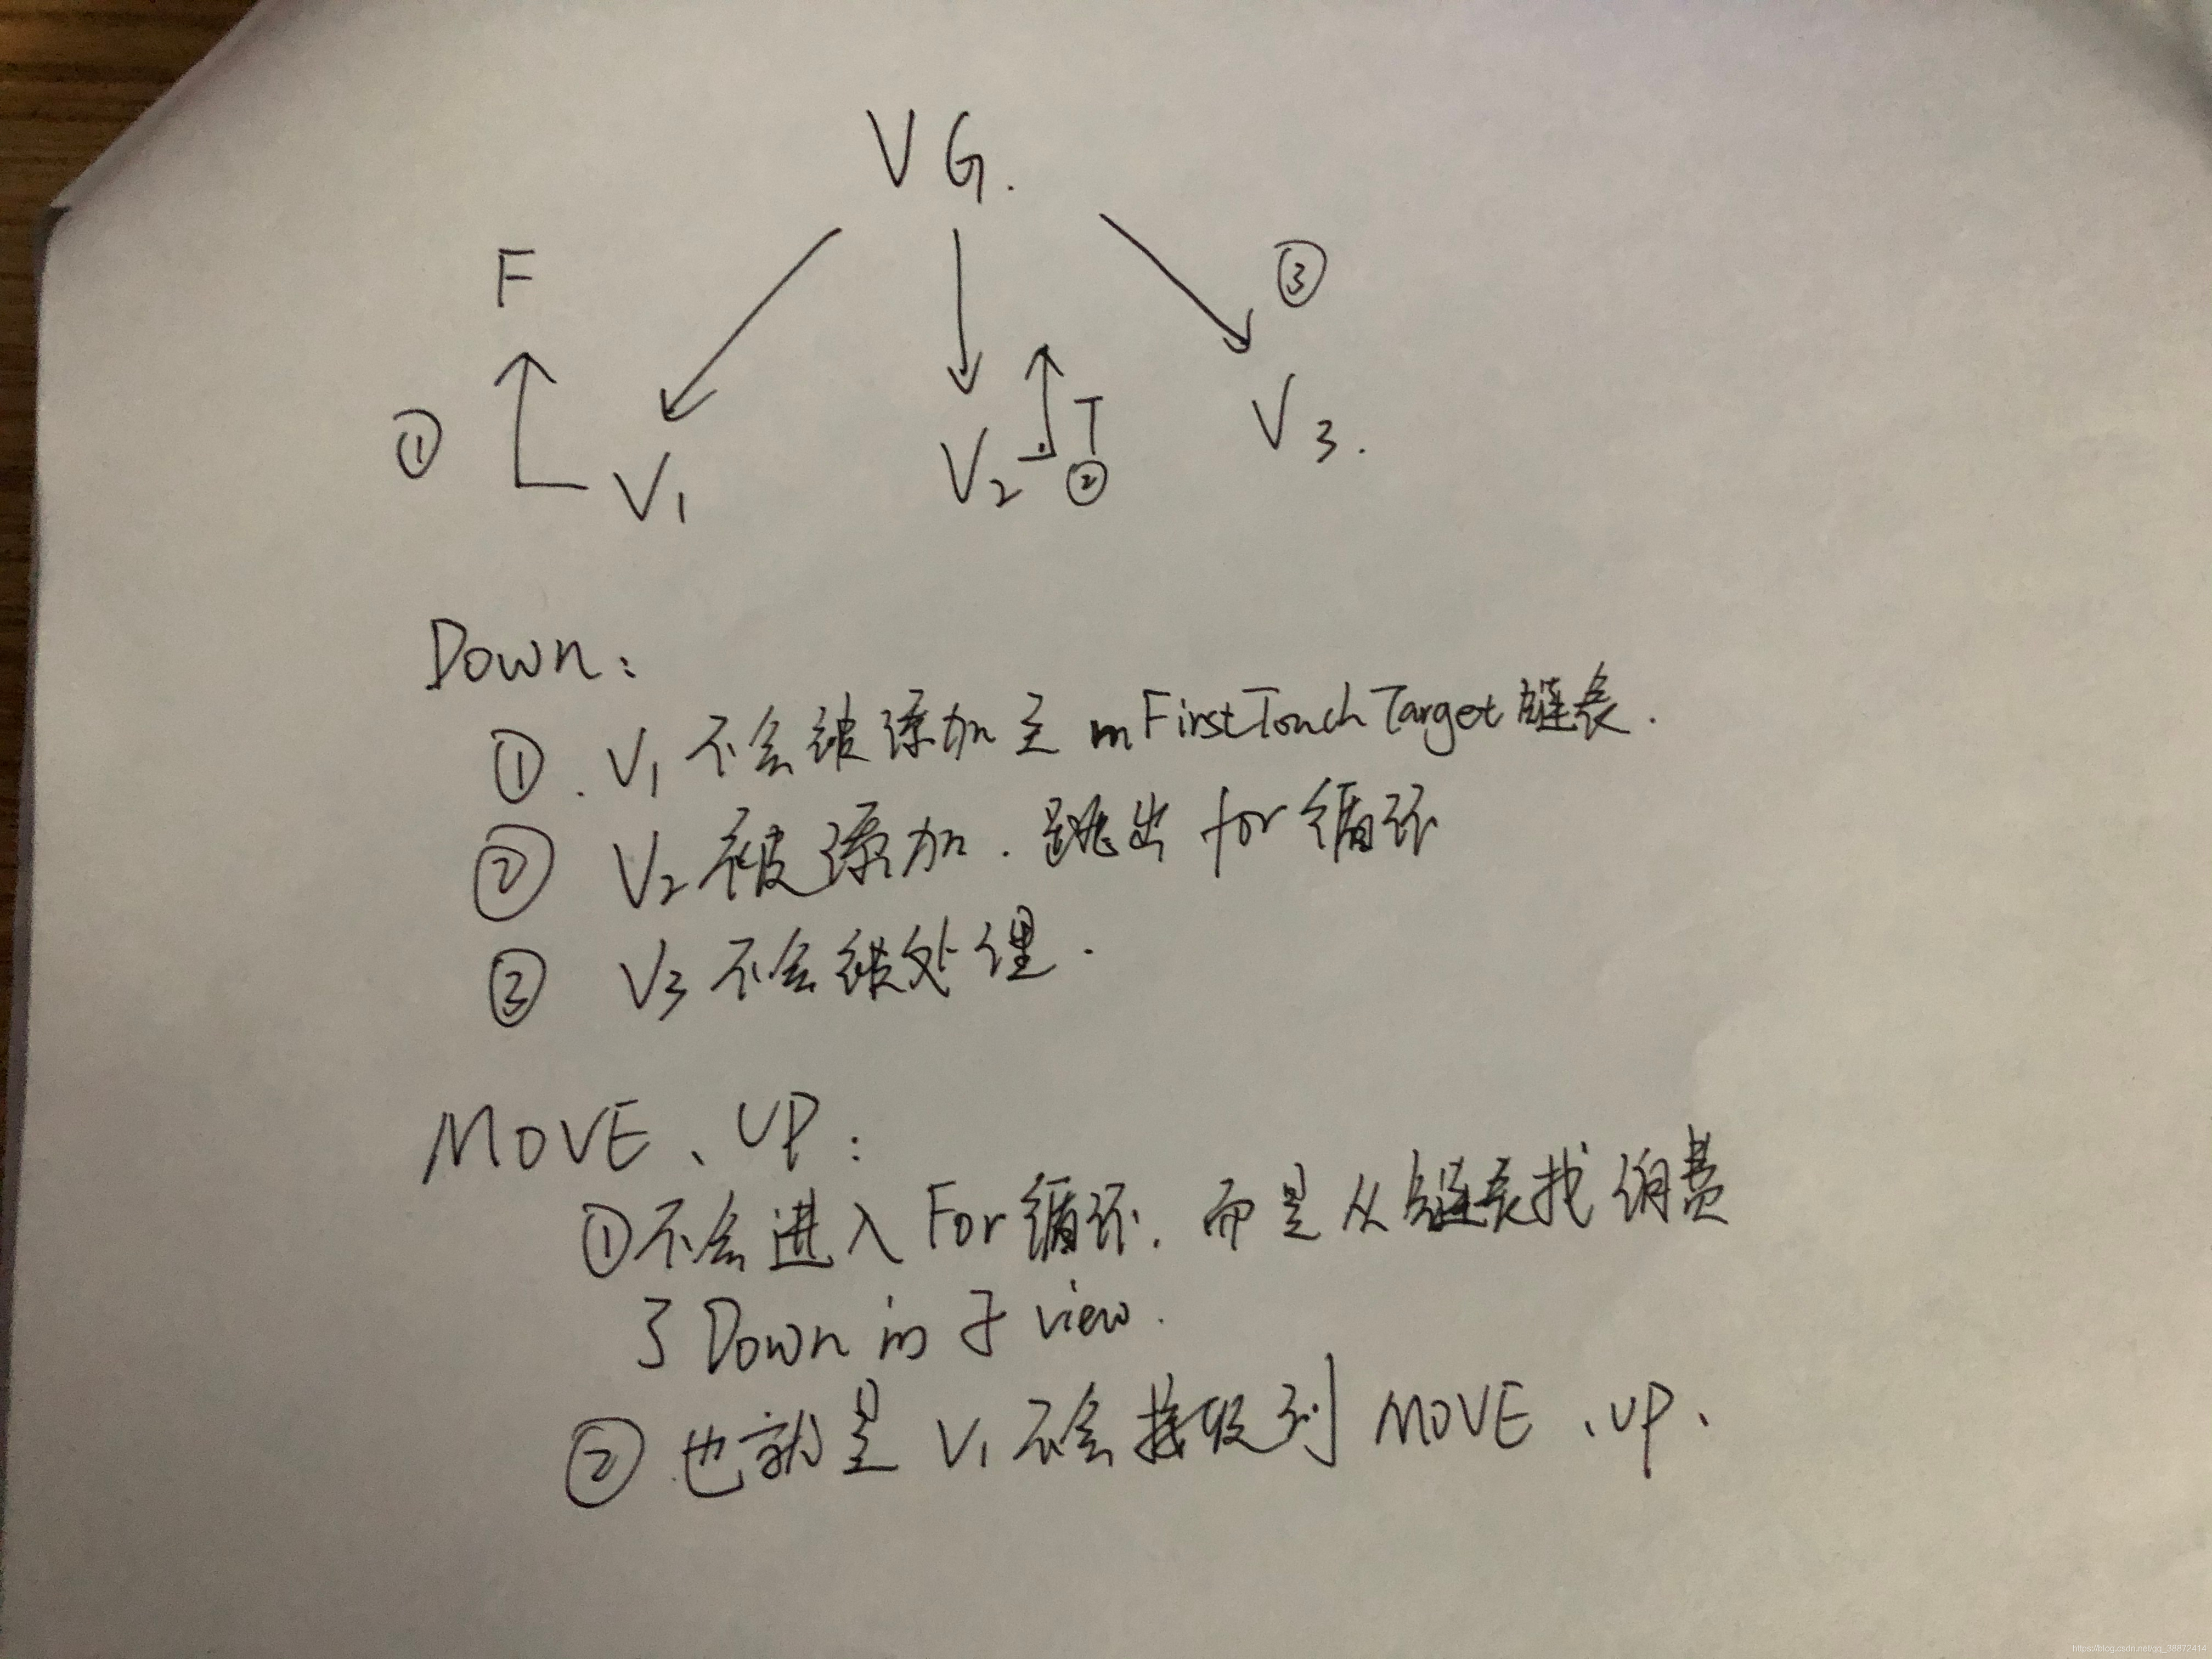 VG.
F
③
①
V1
V2
T
②
V3.
Down:
①. V1 不会被添加至 mFirstTouchTarget链表.
② V2被添加. 跳出 for循环
③ V3不会被处理.
MOVE、UP:
①不会进入 For循环. 而是从链表找 消费
了Down的子view.
② 也就是 V1 不会接收到 MOVE、UP、
https://blog.csdn.net/qq_38872414